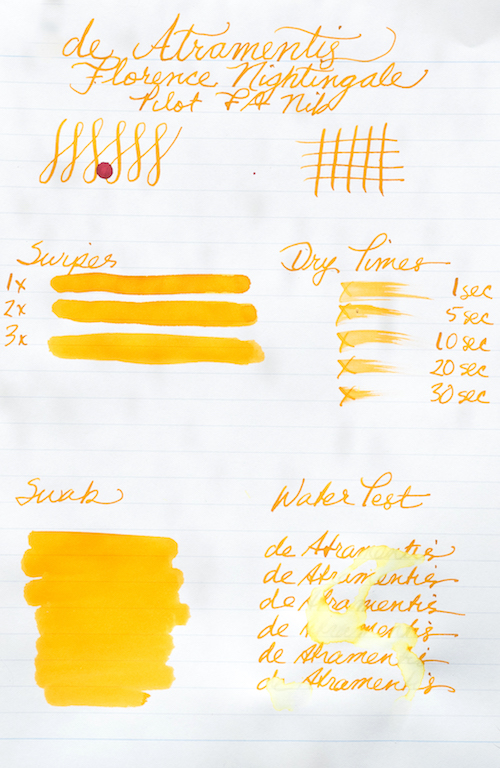 de Atramentis
Florence Nightingale
Pilot FA Nib
Swipes
1x
2x
3x
Dry Times
1 sec
5 sec
10 sec
20 sec
30 sec
Swab
Water Test
de Atramentis
de Atramentis
de Atramentis
de Atramentis
de Atramentis
de Atramentis